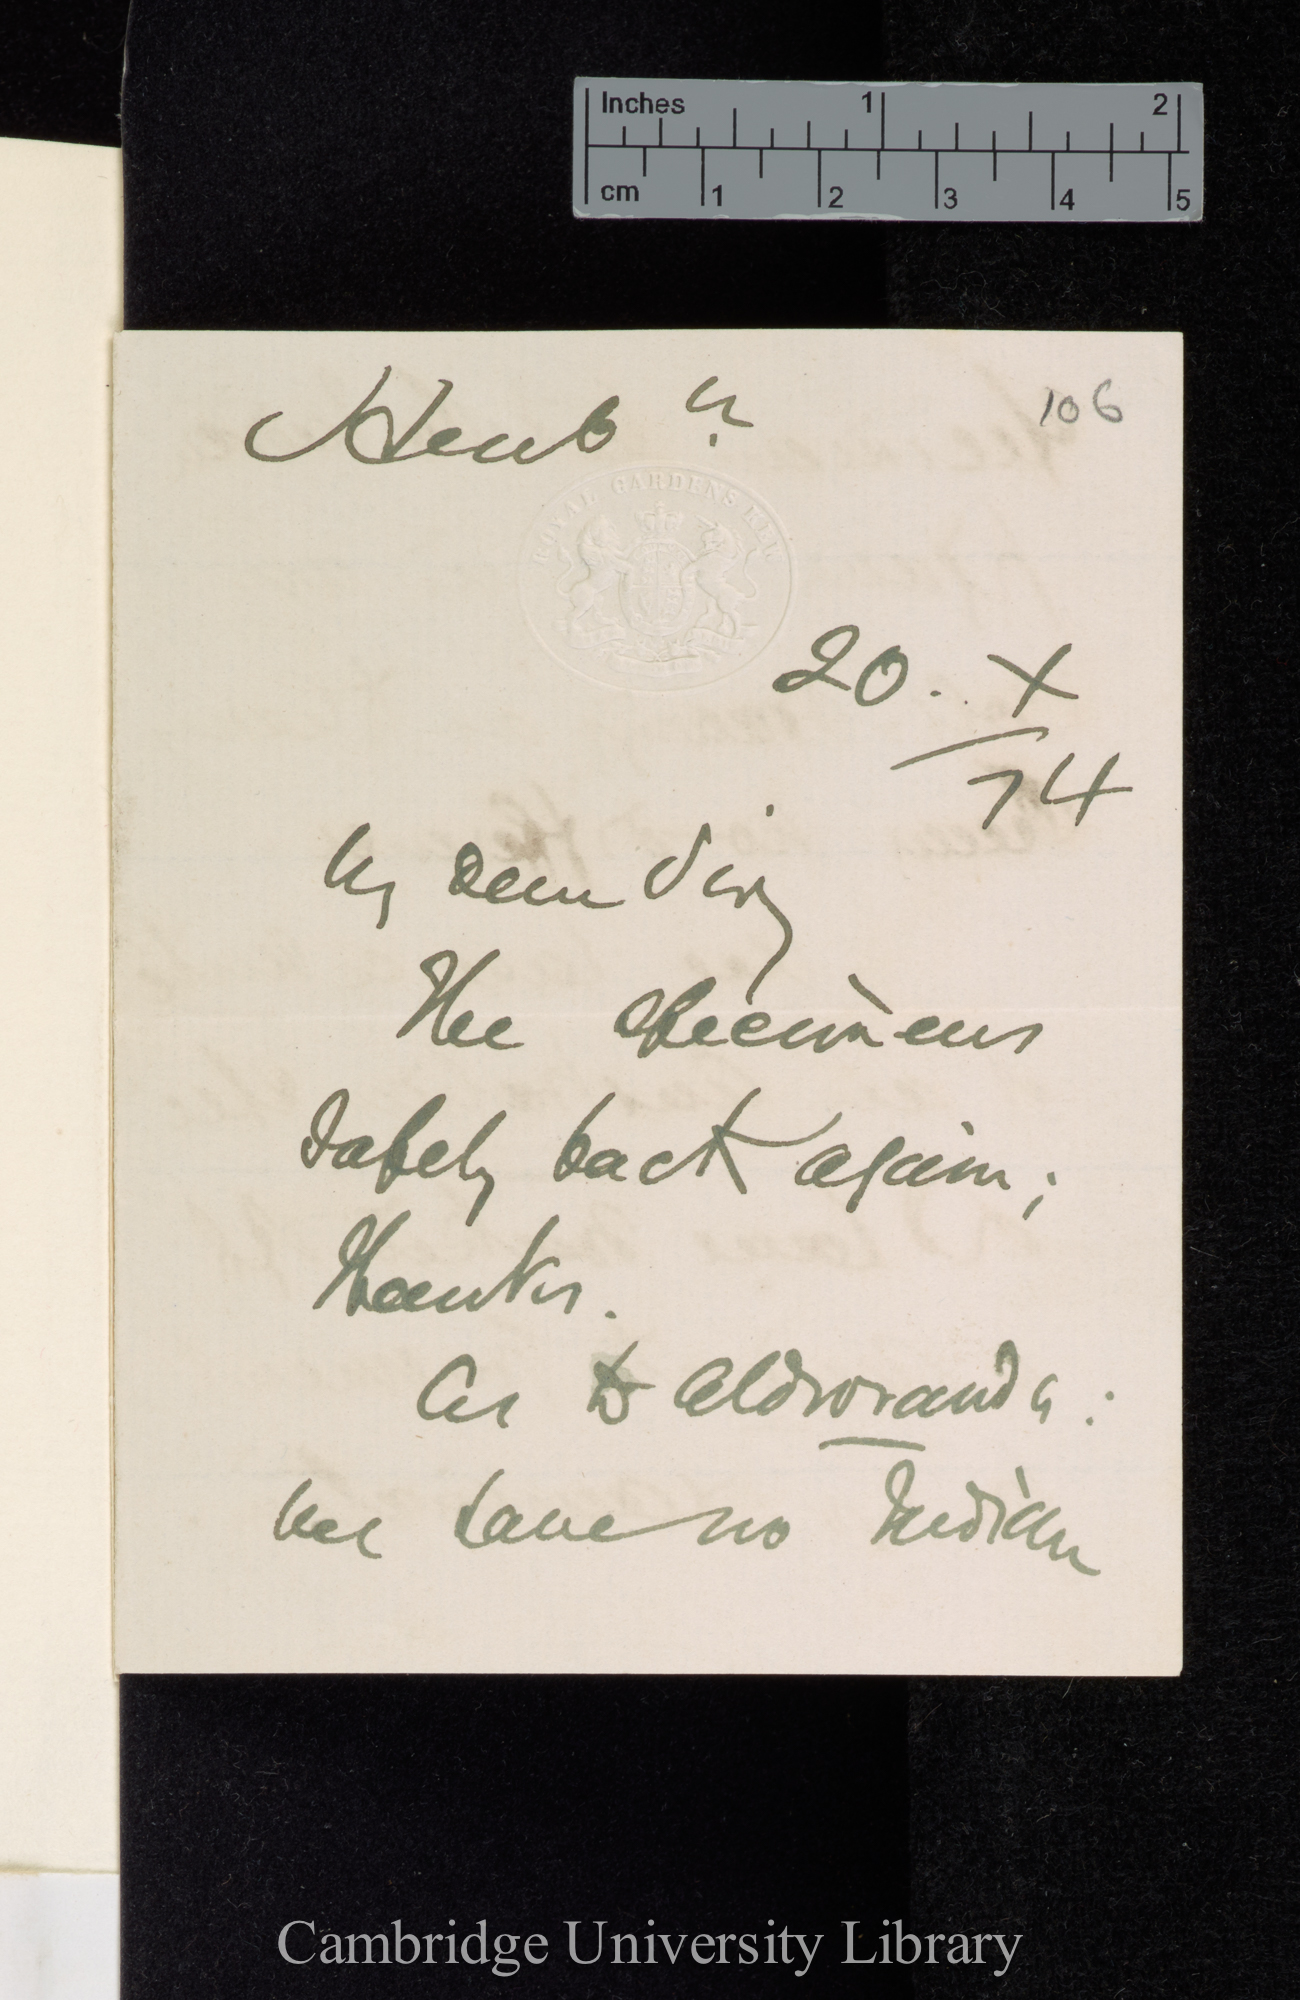 Inches 1 2
cm 1 2 3 4 5
Herb.m
106
ROYAL GARDENS KEW
20. X
/74
My dear Sir,
The specimens
safely back again;
thanks.
As to Aldrovanda:
we have no Indian
Cambridge University Library